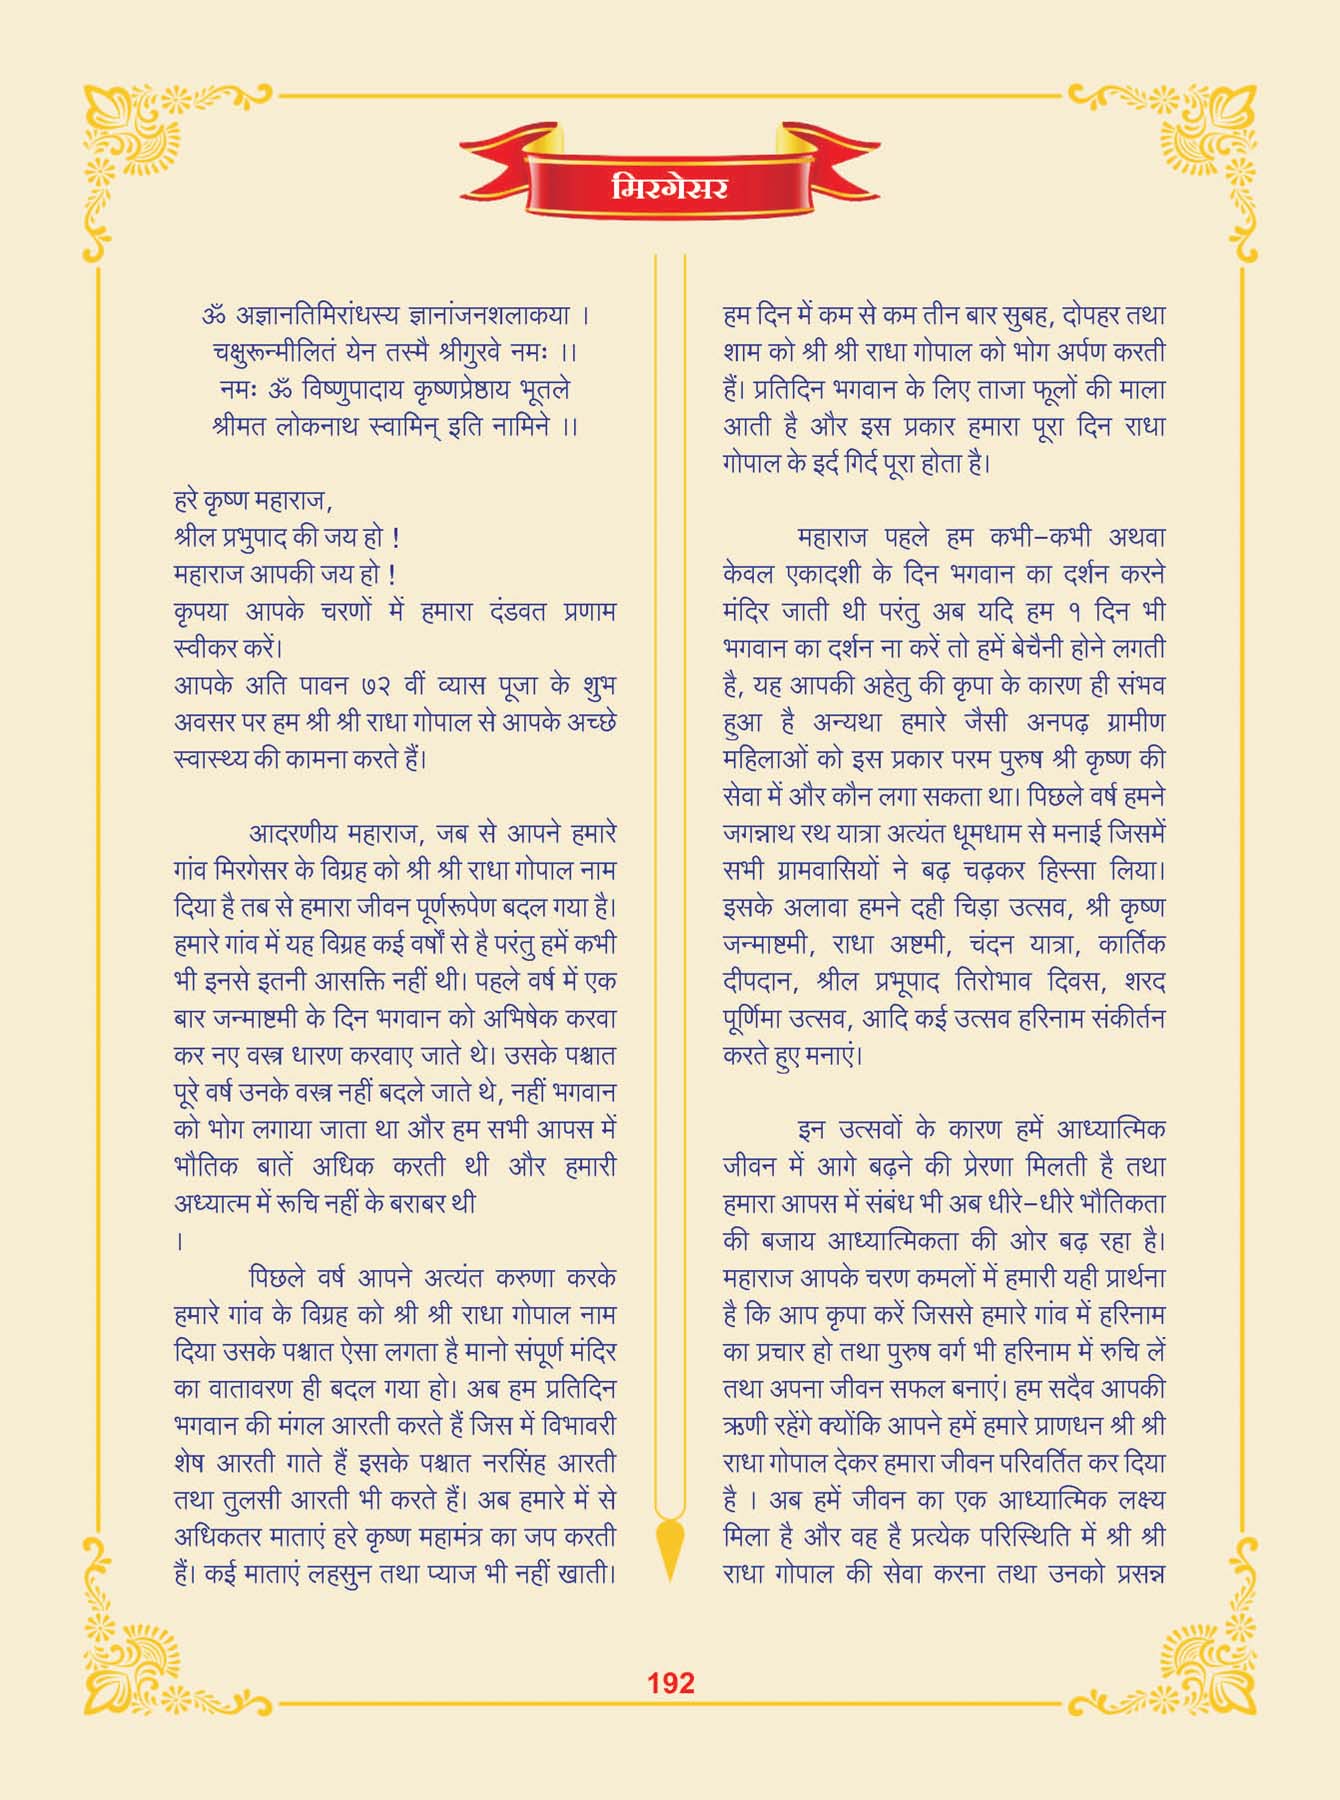 मिरगेसर
ॐ अज्ञानतिमिरांधस्य ज्ञानांजनशलाकया ।
चक्षुरून्मीलितं येन तस्मै श्रीगुरवे नमः ।।
नमः ॐ विष्णुपादाय कृष्णप्रेष्ठाय भूतले
श्रीमत लोकनाथ स्वामिन् इति नामिने ।।
हरे कृष्ण महाराज,
श्रील प्रभुपाद की जय हो !
महाराज आपकी जय हो !
कृपया आपके चरणों में हमारा दंडवत प्रणाम
स्वीकर करें।
आपके अति पावन ७२ वीं व्यास पूजा के शुभ
अवसर पर हम श्री श्री राधा गोपाल से आपके अच्छे
स्वास्थ्य की कामना करते हैं।
आदरणीय महाराज, जब से आपने हमारे
गांव मिरगेसर के विग्रह को श्री श्री राधा गोपाल नाम
दिया है तब से हमारा जीवन पूर्णरूपेण बदल गया है।
हमारे गांव में यह विग्रह कई वर्षों से है परंतु हमें कभी
भी इनसे इतनी आसक्ति नहीं थी। पहले वर्ष में एक
बार जन्माष्टमी के दिन भगवान को अभिषेक करवा
कर नए वस्त्र धारण करवाए जाते थे। उसके पश्चात
पूरे वर्ष उनके वस्त्र नहीं बदले जाते थे, नहीं भगवान
को भोग लगाया जाता था और हम सभी आपस में
भौतिक बातें अधिक करती थी और हमारी
अध्यात्म में रूचि नहीं के बराबर थी
।
पिछले वर्ष आपने अत्यंत करुणा करके
हमारे गांव के विग्रह को श्री श्री राधा गोपाल नाम
दिया उसके पश्चात ऐसा लगता है मानो संपूर्ण मंदिर
का वातावरण ही बदल गया हो। अब हम प्रतिदिन
भगवान की मंगल आरती करते हैं जिस में विभावरी
शेष आरती गाते हैं इसके पश्चात नरसिंह आरती
तथा तुलसी आरती भी करते हैं। अब हमारे में से
अधिकतर माताएं हरे कृष्ण महामंत्र का जप करती
हैं। कई माताएं लहसुन तथा प्याज भी नहीं खाती।
हम दिन में कम से कम तीन बार सुबह, दोपहर तथा
शाम को श्री श्री राधा गोपाल को भोग अर्पण करती
हैं। प्रतिदिन भगवान के लिए ताजा फूलों की माला
आती है और इस प्रकार हमारा पूरा दिन राधा
गोपाल के इर्द गिर्द पूरा होता है।
महाराज पहले हम कभी-कभी अथवा
केवल एकादशी के दिन भगवान का दर्शन करने
मंदिर जाती थी परंतु अब यदि हम १ दिन भी
भगवान का दर्शन ना करें तो हमें बेचैनी होने लगती
है, यह आपकी अहेतु की कृपा के कारण ही संभव
हुआ है अन्यथा हमारे जैसी अनपढ़ ग्रामीण
महिलाओं को इस प्रकार परम पुरुष श्री कृष्ण की
सेवा में और कौन लगा सकता था। पिछले वर्ष हमने
जगन्नाथ रथ यात्रा अत्यंत धूमधाम से मनाई जिसमें
सभी ग्रामवासियों ने बढ़ चढ़कर हिस्सा लिया।
इसके अलावा हमने दही चिड़ा उत्सव, श्री कृष्ण
जन्माष्टमी, राधा अष्टमी, चंदन यात्रा, कार्तिक
दीपदान, श्रील प्रभूपाद तिरोभाव दिवस, शरद
पूर्णिमा उत्सव, आदि कई उत्सव हरिनाम संकीर्तन
करते हुए मनाएं।
इन उत्सवों के कारण हमें आध्यात्मिक
जीवन में आगे बढ़ने की प्रेरणा मिलती है तथा
हमारा आपस में संबंध भी अब धीरे-धीरे भौतिकता
की बजाय आध्यात्मिकता की ओर बढ़ रहा है।
महाराज आपके चरण कमलों में हमारी यही प्रार्थना
है कि आप कृपा करें जिससे हमारे गांव में हरिनाम
का प्रचार हो तथा पुरुष वर्ग भी हरिनाम में रुचि लें
तथा अपना जीवन सफल बनाएं। हम सदैव आपकी
ऋणी रहेंगे क्योंकि आपने हमें हमारे प्राणधन श्री श्री
राधा गोपाल देकर हमारा जीवन परिवर्तित कर दिया
है । अब हमें जीवन का एक आध्यात्मिक लक्ष्य
मिला है और वह है प्रत्येक परिस्थिति में श्री श्री
राधा गोपाल की सेवा करना तथा उनको प्रसन्न
192